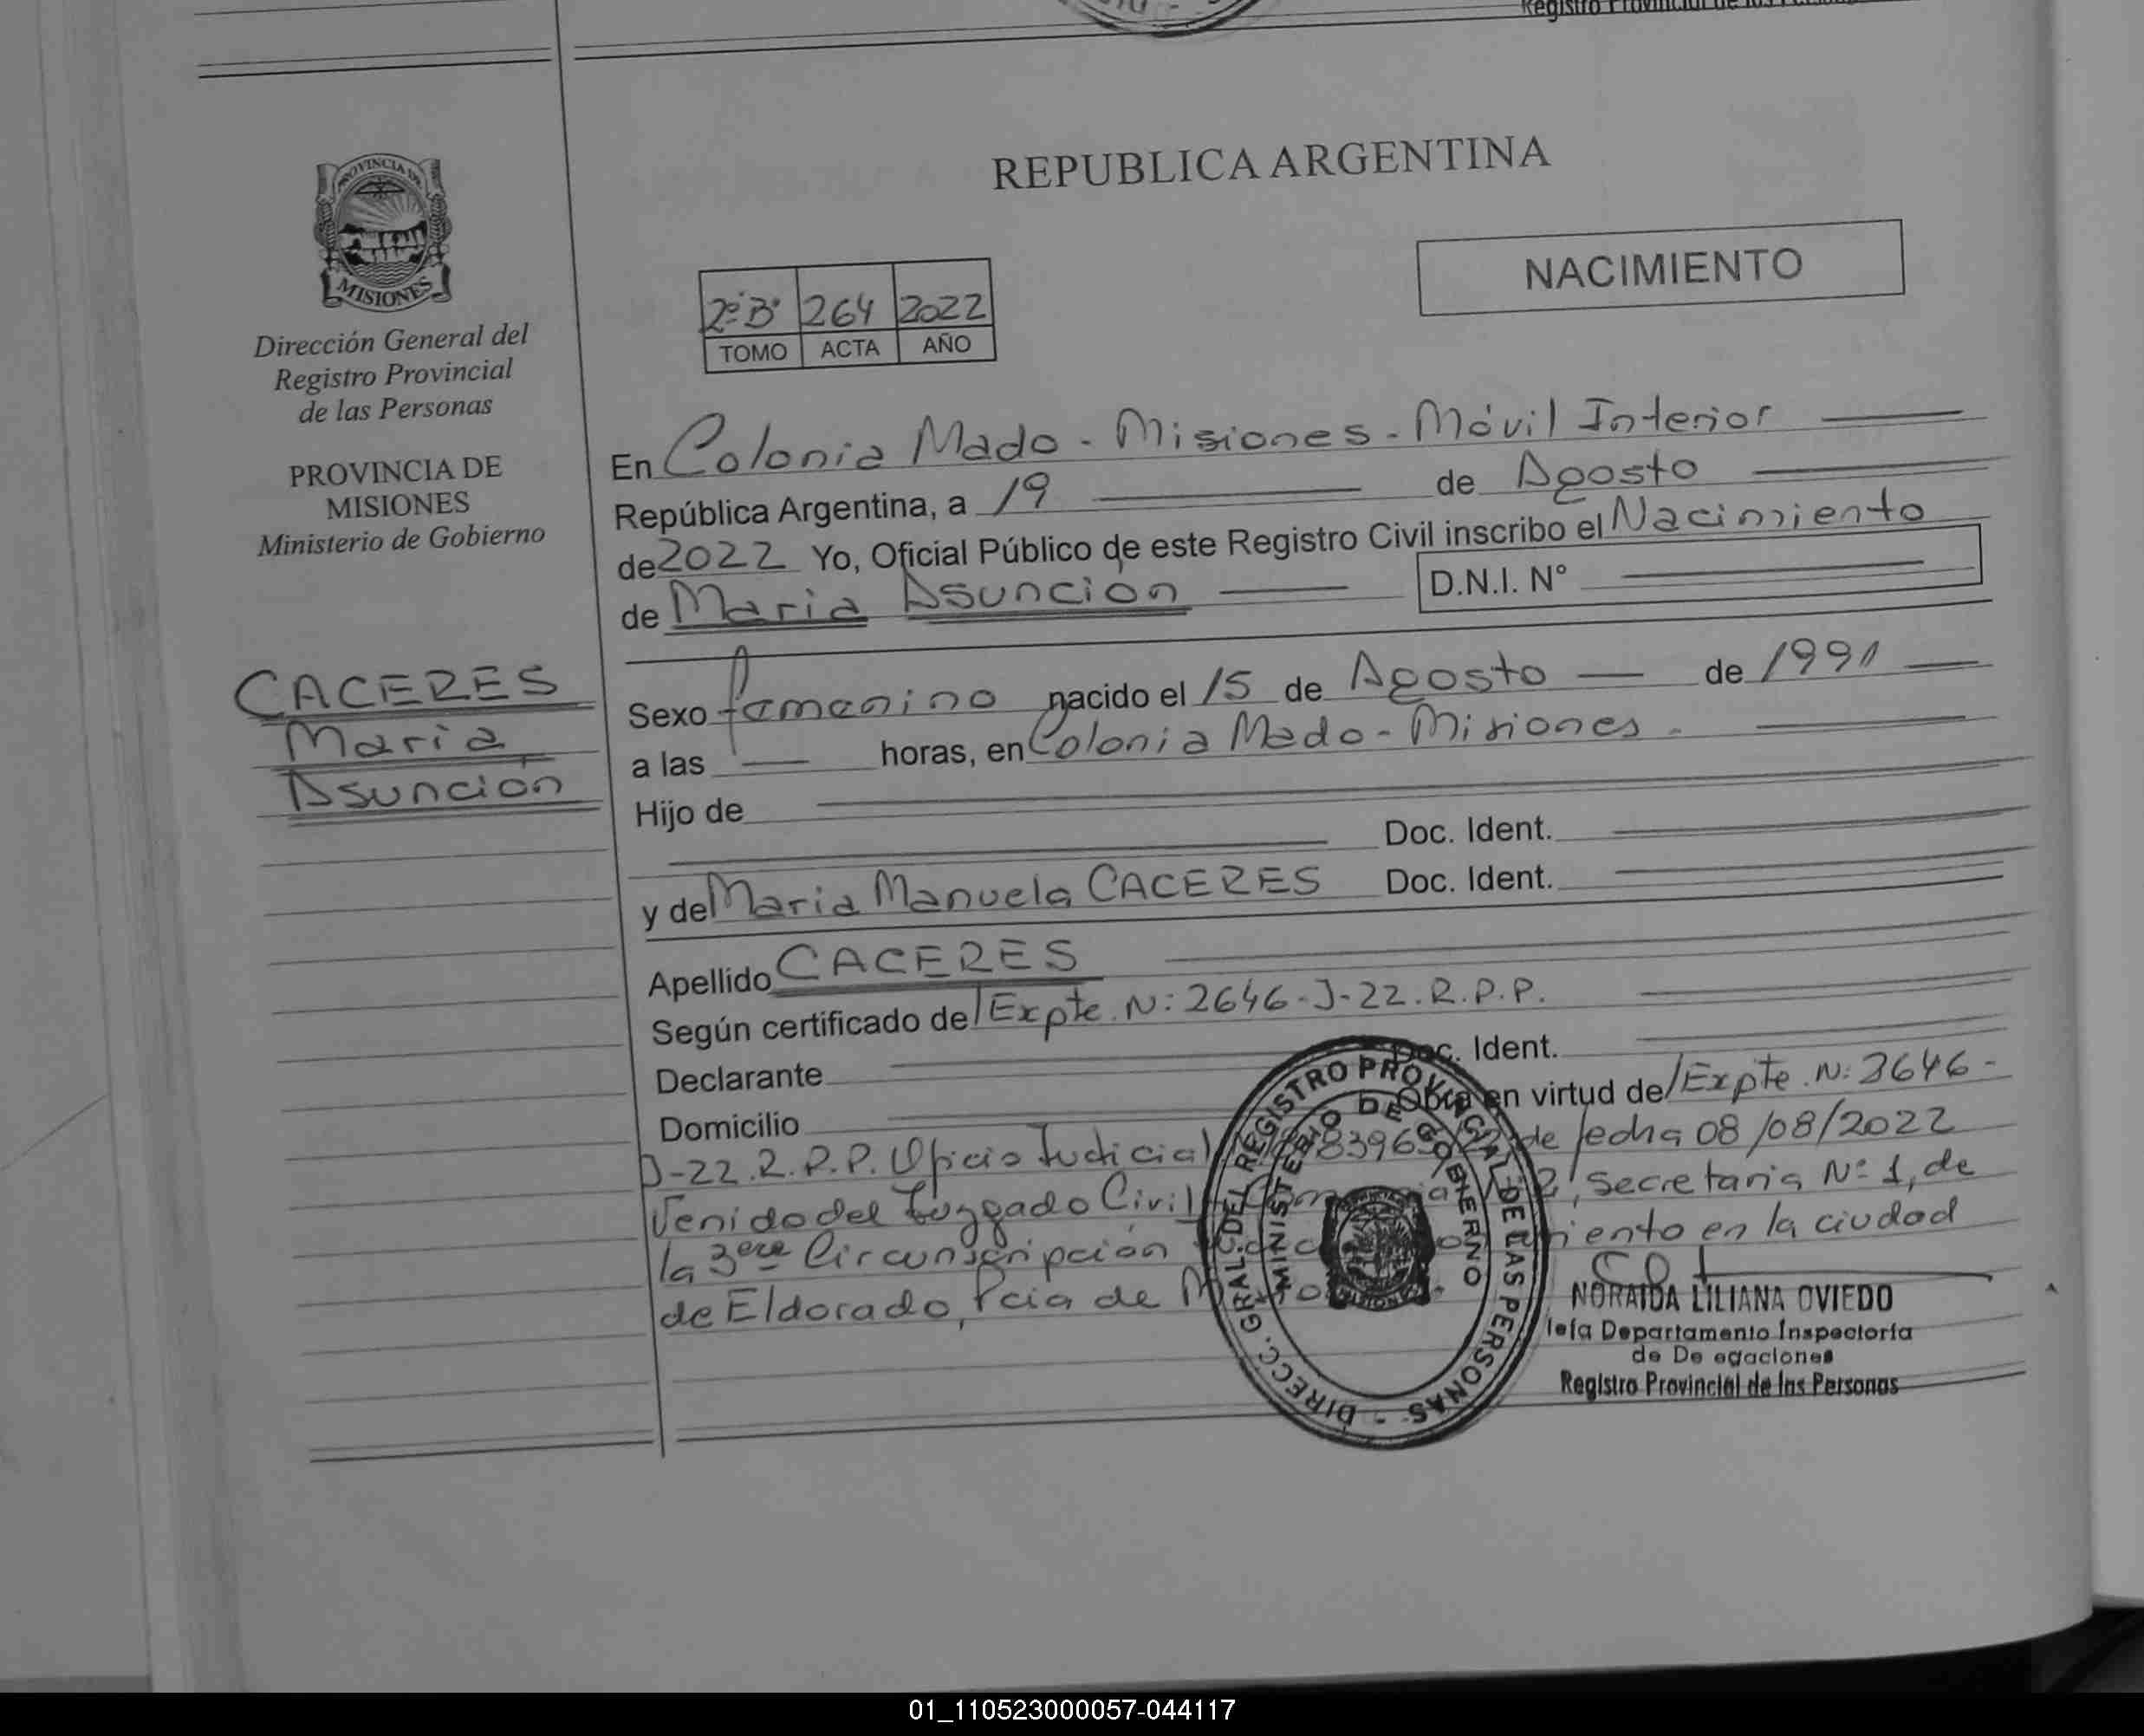 Registro Provincial de las Personas
PROVINCIA DE
MISIONES
Dirección General del
Registro Provincial
de las Personas
PROVINCIA DE
MISIONES
Ministerio de Gobierno
CACERES
Maria
Asunción
REPUBLICA ARGENTINA
NACIMIENTO
2º Bº 264 2022
TOMO ACTA AÑO
En Colonia Mado - Misiones - Móvil Interior
República Argentina, a 19 de Agosto
de 2022 Yo, Oficial Público de este Registro Civil inscribo el Nacimiento
de Maria Asunción D.N.I. N°
Sexo femenino nacido el 15 de Agosto de 1991
a las horas, en Colonia Mado - Misiones -
Hijo de
Doc. Ident.
y de Maria Manuela CACERES Doc. Ident.
Apellido CACERES
Según certificado de Expte. N: 2646-J-22. R.P.P.
Declarante Doc. Ident.
Domicilio Obra en virtud de Expte. N: 2646-
J-22. R.P.P. Oficio Judicial de fecha 08/08/2022
Venido del Juzgado Civil Secretaria Nº 1, de
la 3era Circunscripción en la ciudad
de Eldorado, Pcia de
DIRECC. GRAL. DEL REGISTRO PROVINCIAL DE LAS PERSONAS -
MINISTERIO DE GOBIERNO
NORAIDA LILIANA OVIEDO
Jefa Departamento Inspectoría
de Delegaciones
Registro Provincial de las Personas
01_110523000057-044117